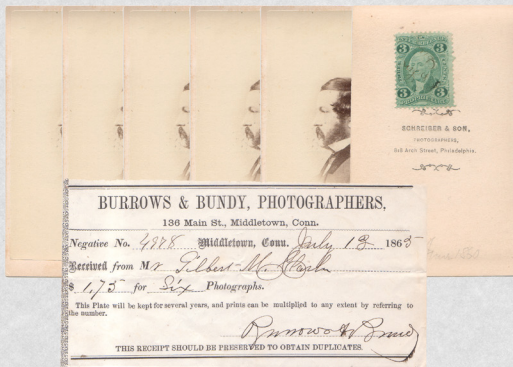 3 3
SCHREIBER & SON,
PHOTOGRAPHERS,
Arch Street, Philadelphia.
BURROWS & BUNDY, PHOTOGRAPHERS,
136 Main St., Middletown, Conn.
Negative No. 4878 Middletown, Conn. July 13 1865
Received from Mr Gilbert M.
$ 1,75 for Six Photographs.
This Plate will be kept for several years, and prints can be multiplied to any extent by referring to
the number.
Burrows & Bundy
THIS RECEIPT SHOULD BE PRESERVED TO OBTAIN DUPLICATES.